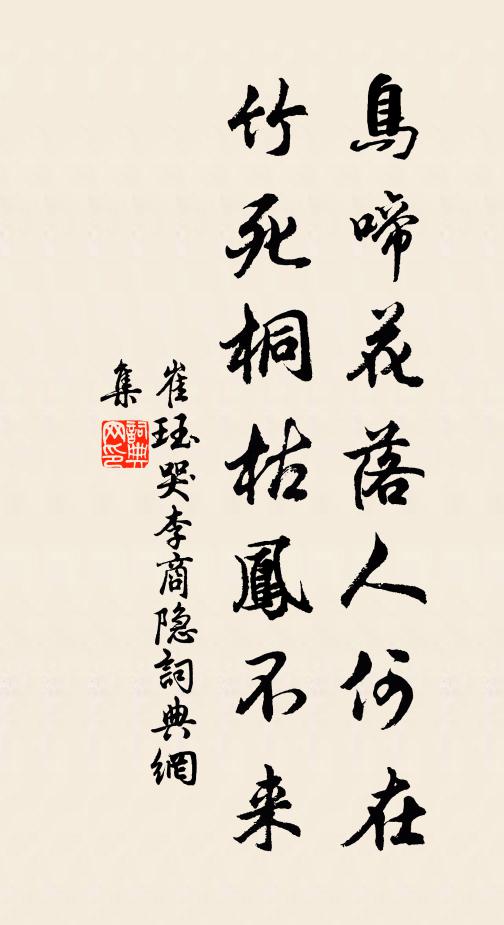 鳥啼花落人何在
竹死桐枯鳳不来
崔珏哭李商隐詞典網
集
詞典网印